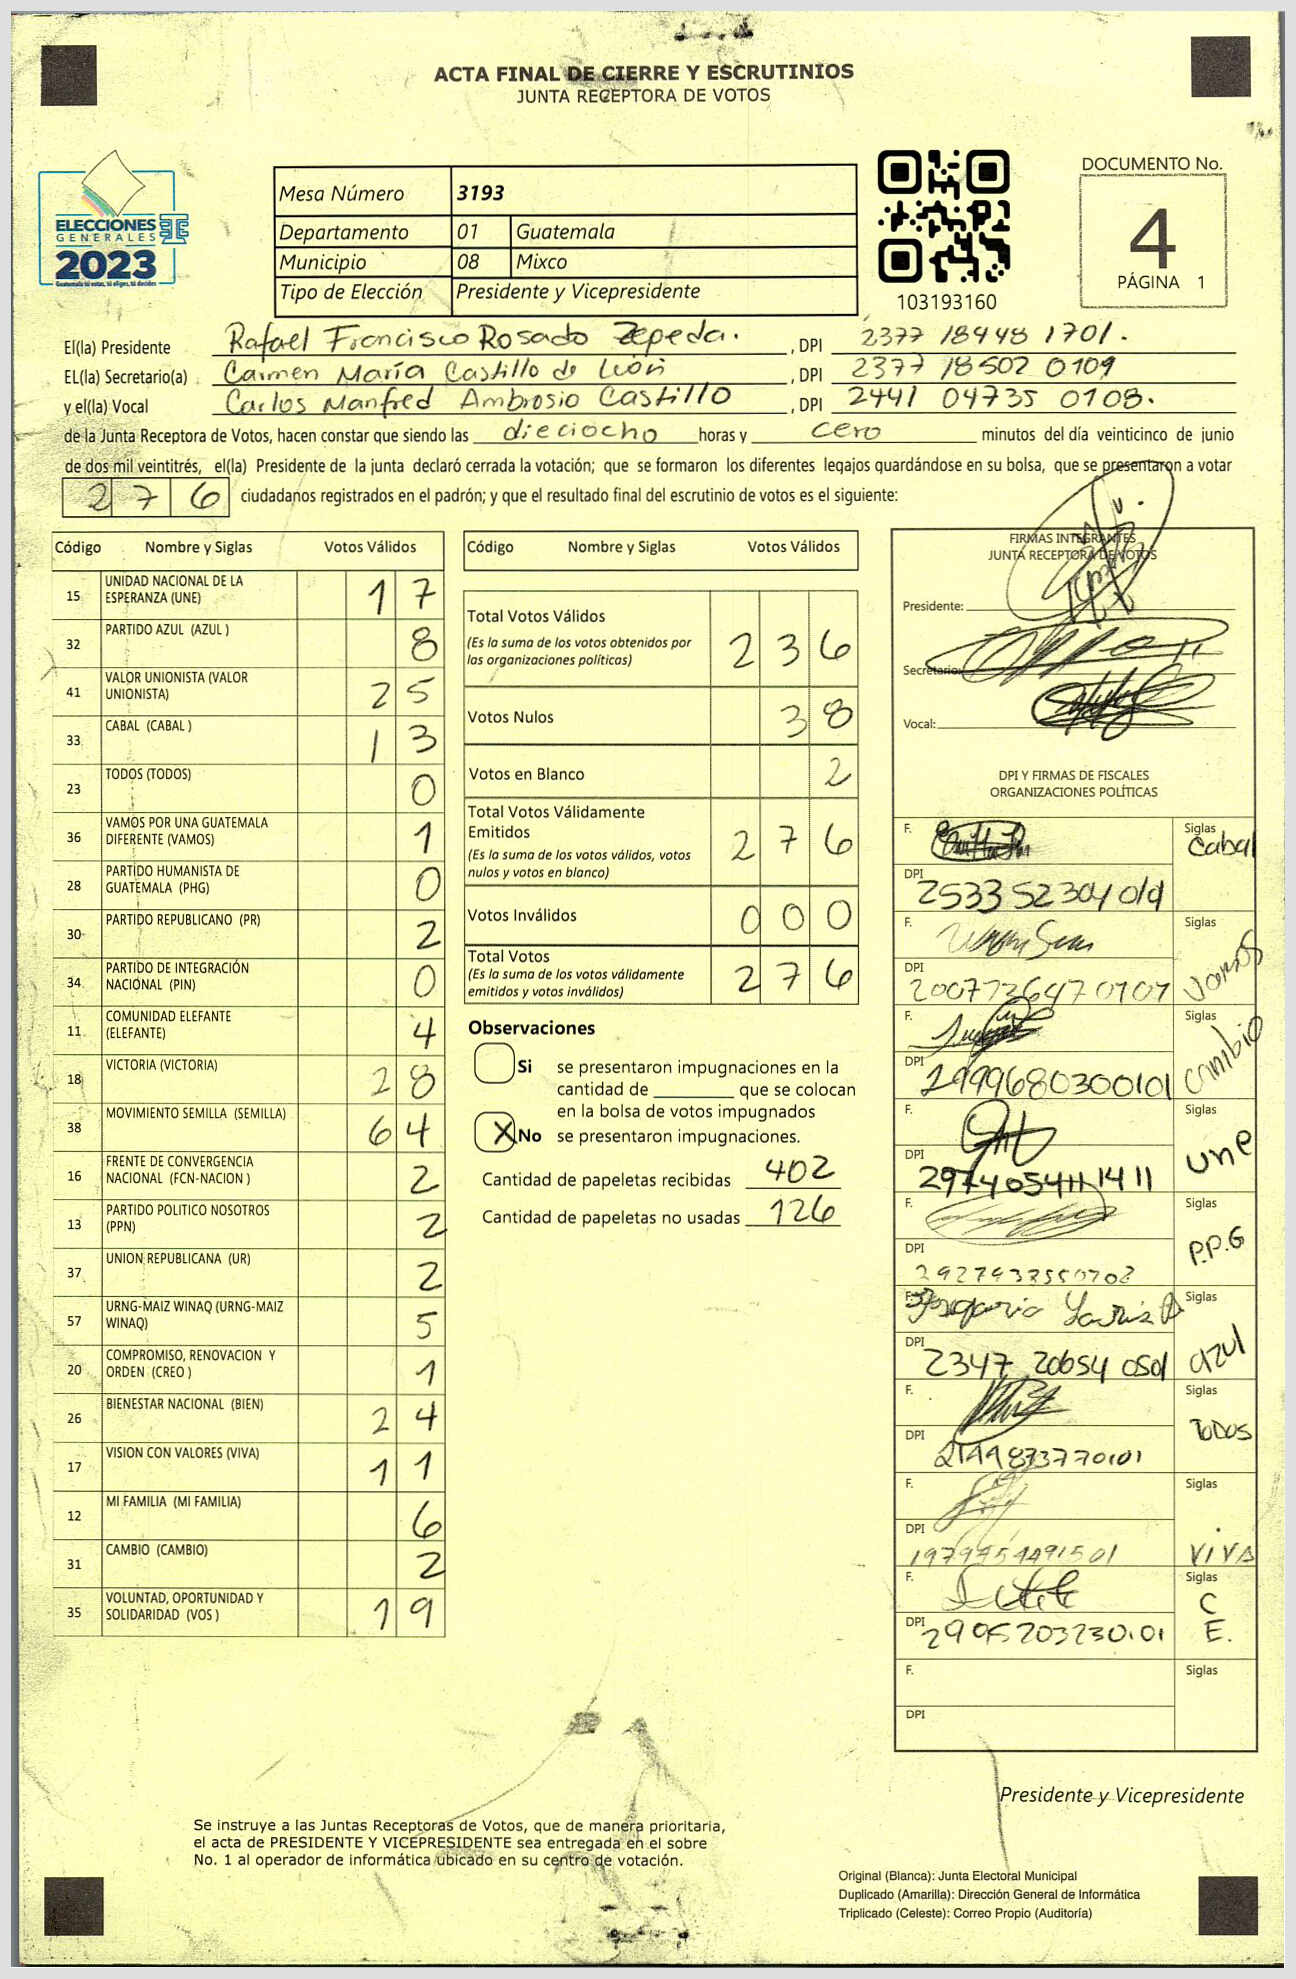 ACTA FINAL DE CIERRE Y ESCRUTINIOS
JUNTA RECEPTORA DE VOTOS
ELECCIONES
GENERALES
2023
Guatemala tú votas, tú eliges, tú decides
Mesa Número 3193
Departamento 01 Guatemala
Municipio 08 Mixco
Tipo de Elección Presidente y Vicepresidente
103193160
DOCUMENTO No.
4
PÁGINA 1
El(la) Presidente Rafael Francisco Rosado Zepeda. , DPI 2377 18448 1701.
EL(la) Secretario(a) Carmen María Castillo de León , DPI 2377 18502 0109
y el(la) Vocal Carlos Manfred Ambrosio Castillo , DPI 2441 04735 0108.
de la Junta Receptora de Votos, hacen constar que siendo las dieciocho horas y cero minutos del día veinticinco de junio
de dos mil veintitrés, el(la) Presidente de la junta declaró cerrada la votación; que se formaron los diferentes legajos guardándose en su bolsa, que se presentaron a votar
276 ciudadanos registrados en el padrón; y que el resultado final del escrutinio de votos es el siguiente:
Código Nombre y Siglas Votos Válidos
15 UNIDAD NACIONAL DE LA ESPERANZA (UNE) 17
32 PARTIDO AZUL (AZUL ) 8
41 VALOR UNIONISTA (VALOR UNIONISTA) 25
33 CABAL (CABAL ) 13
23 TODOS (TODOS) 0
36 VAMOS POR UNA GUATEMALA DIFERENTE (VAMOS) 1
28 PARTIDO HUMANISTA DE GUATEMALA (PHG) 0
30 PARTIDO REPUBLICANO (PR) 2
34 PARTIDO DE INTEGRACIÓN NACIONAL (PIN) 0
11 COMUNIDAD ELEFANTE (ELEFANTE) 4
18 VICTORIA (VICTORIA) 28
38 MOVIMIENTO SEMILLA (SEMILLA) 64
16 FRENTE DE CONVERGENCIA NACIONAL (FCN-NACION ) 2
13 PARTIDO POLITICO NOSOTROS (PPN) 2
37 UNION REPUBLICANA (UR) 2
57 URNG-MAIZ WINAQ (URNG-MAIZ WINAQ) 5
20 COMPROMISO, RENOVACION Y ORDEN (CREO ) 1
26 BIENESTAR NACIONAL (BIEN) 24
17 VISION CON VALORES (VIVA) 11
12 MI FAMILIA (MI FAMILIA) 6
31 CAMBIO (CAMBIO) 2
35 VOLUNTAD, OPORTUNIDAD Y SOLIDARIDAD (VOS ) 19
Código Nombre y Siglas Votos Válidos
Total Votos Válidos 236
(Es la suma de los votos obtenidos por
las organizaciones políticas)
Votos Nulos 38
Votos en Blanco 2
Total Votos Válidamente
Emitidos 276
(Es la suma de los votos válidos, votos
nulos y votos en blanco)
Votos Inválidos 000
Total Votos 276
(Es la suma de los votos válidamente
emitidos y votos inválidos)
Observaciones
Si se presentaron impugnaciones en la
cantidad de ________ que se colocan
en la bolsa de votos impugnados
X No se presentaron impugnaciones.
Cantidad de papeletas recibidas 402
Cantidad de papeletas no usadas 126
FIRMAS INTEGRANTES
JUNTA RECEPTORA DE VOTOS
Presidente:
Secretario:
Vocal:
DPI Y FIRMAS DE FISCALES
ORGANIZACIONES POLÍTICAS
F. Siglas Cabal
DPI
F. Siglas vamos
DPI
F. Siglas cambio
DPI 2999680300101
F. Siglas une
DPI
F. Siglas P.P.G
DPI
F. Siglas azul
DPI
F. Siglas TODOS
DPI
F. Siglas VIVA
DPI
F. Siglas C E.
DPI
F. Siglas
DPI
Presidente y Vicepresidente
Se instruye a las Juntas Receptoras de Votos, que de manera prioritaria,
el acta de PRESIDENTE Y VICEPRESIDENTE sea entregada en el sobre
No. 1 al operador de informática ubicado en su centro de votación.
Original (Blanca): Junta Electoral Municipal
Duplicado (Amarilla): Dirección General de Informática
Triplicado (Celeste): Correo Propio (Auditoría)